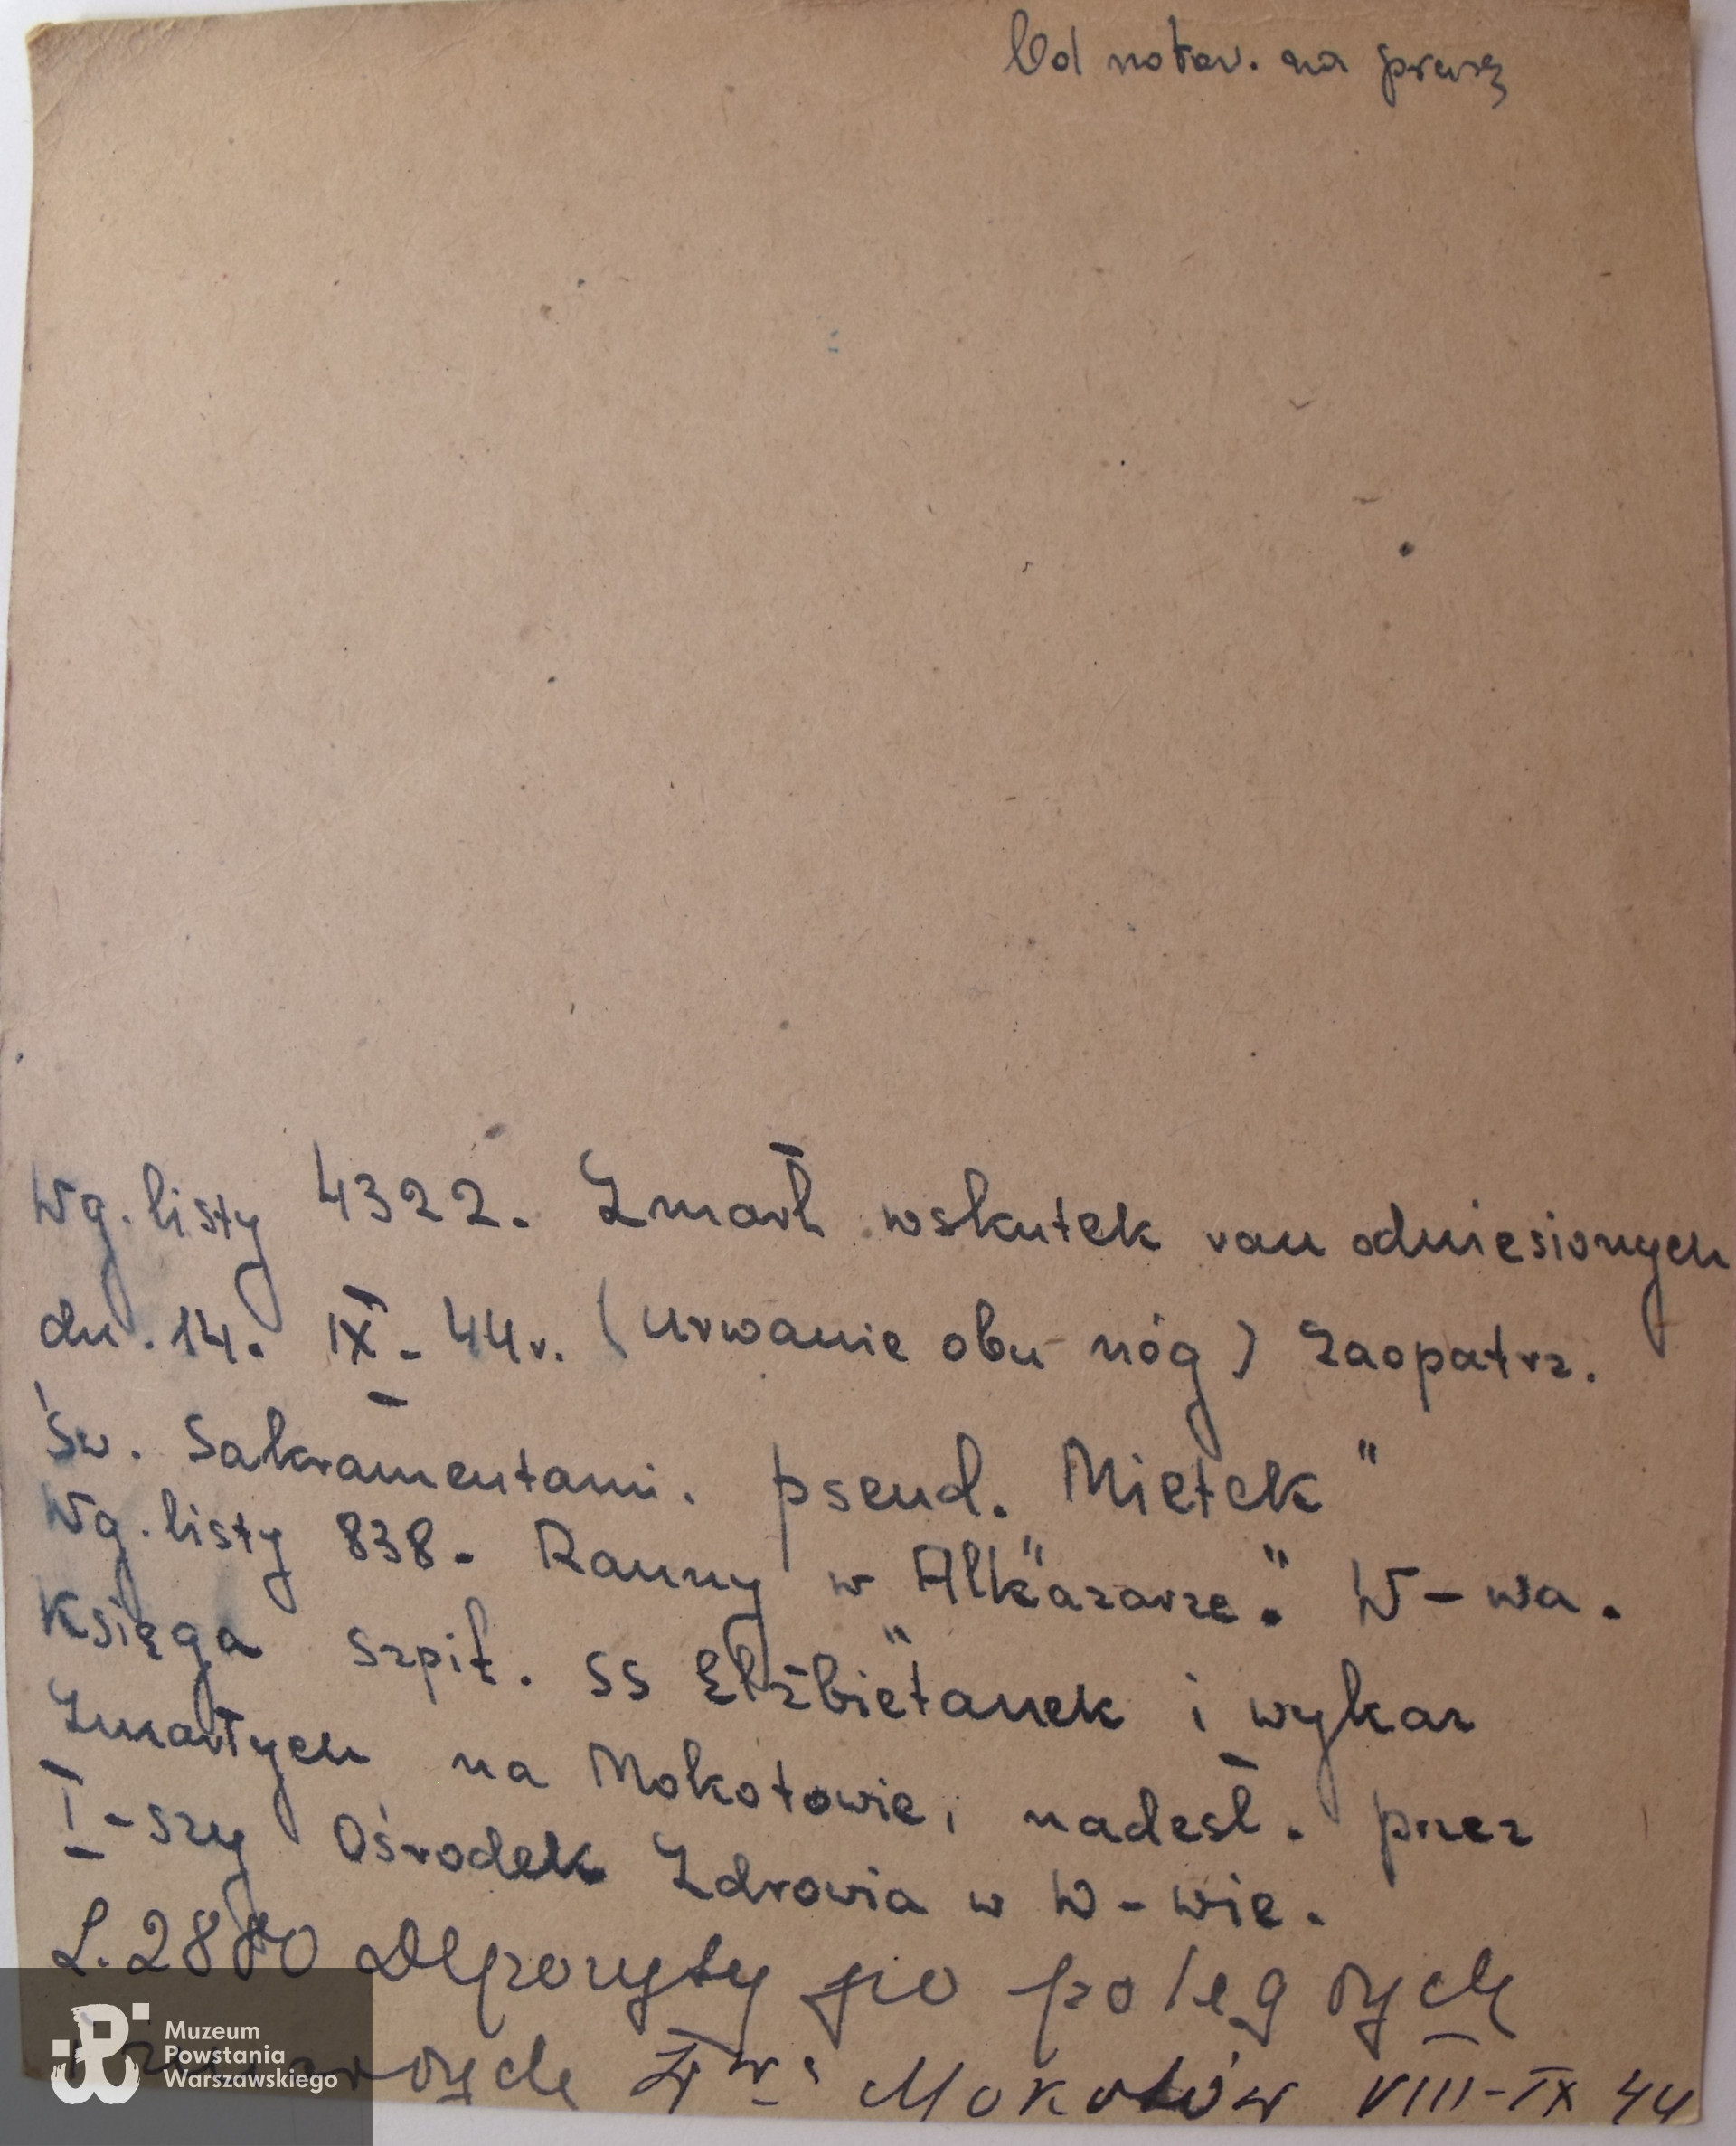 Od notow. na prasę
Wg. listy 4322. Zmarł wskutek ran odniesionych
dn. 14. IX - 44r. (urwanie obu nóg) zaopatrz.
Św. Sakramentami. pseud. Mietek"
Wg. listy 838. Ranny w "Alkazarze". W-wa.
Księga szpit. SS Elżbietanek i wykaz
Zmarłych na Mokotowie, nadesł. przez
I-szy Ośrodek Zdrowia w W-wie.
L. 2880 Depozyty po poległych
Mokotów VIII-IX 44
Muzeum
Powstania
Warszawskiego